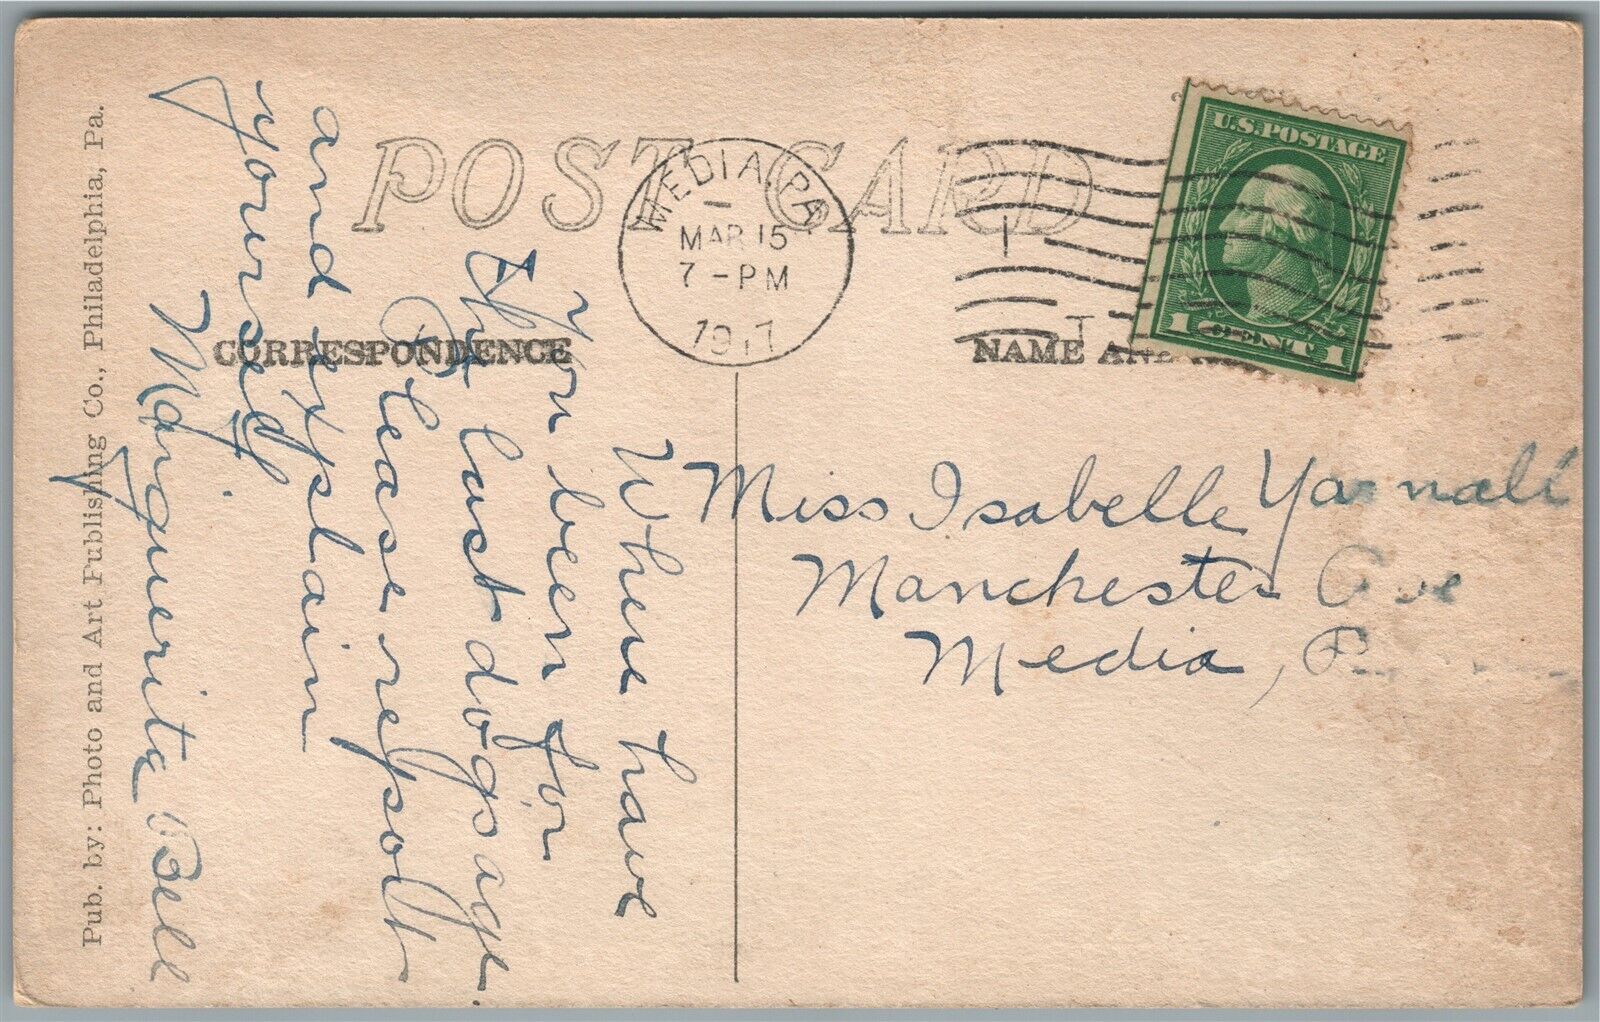 POST CARD
MEDIA, PA
MAR 15
7-PM
1917
U.S. POSTAGE
1 CENT 1
CORRESPONDENCE
NAME AND
Where have
you been for
the last dogs age.
Please repolt
and explain
yourself
Marguerita Bell
Miss Isabelle Yarnall
Manchester Ave
Media,
Pub. by: Photo and Art Publishing Co., Philadelphia, Pa.